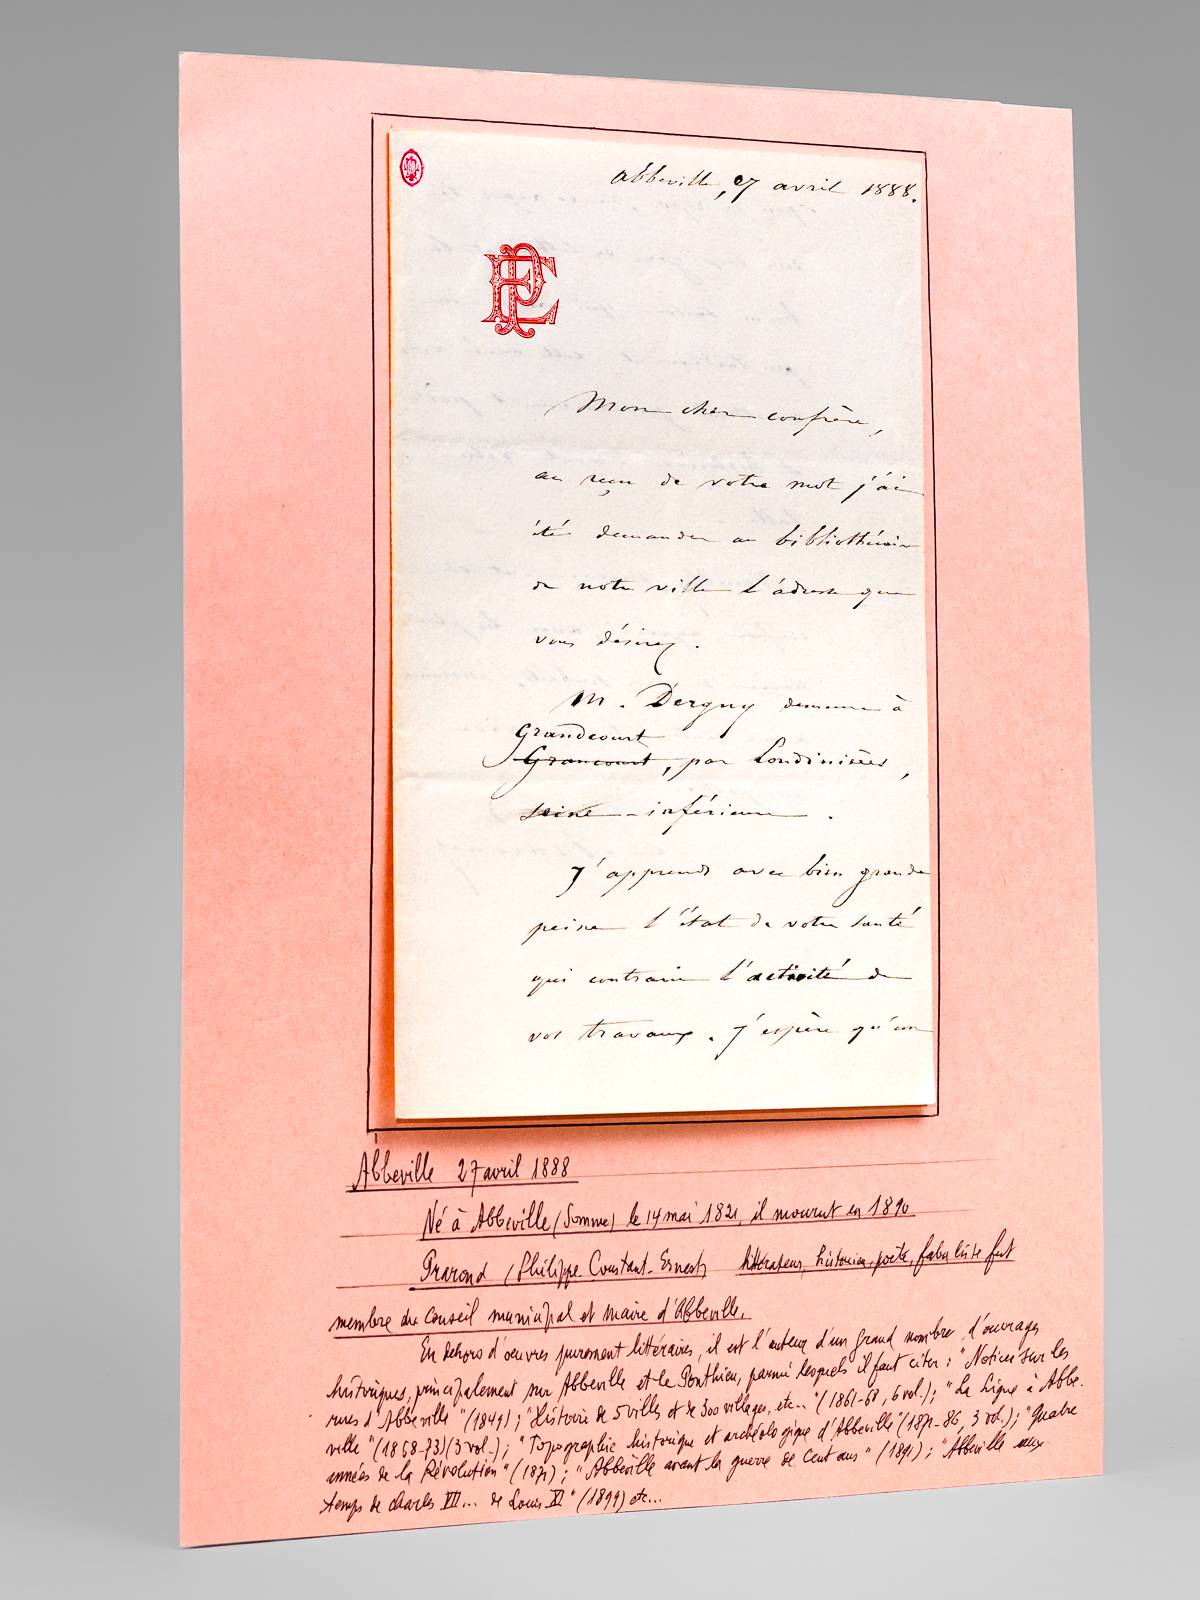 Abbeville, 27 avril 1888.
EP
Mon cher confrère,
au reçu de votre mot j'ai
été demander au bibliothécaire
de notre ville l'adresse que
vous désirez.
M. Dergny demeure à
Grandcourt
Grancourt, par Londinières,
seine-inférieure.
J'apprends avec bien grande
peine l'état de votre santé
qui contrarie l'activité de
vos travaux. J'espère qu'un
Abbeville 27 avril 1888
Né à Abbeville (Somme) le 14 mai 1821, il mourut en 1890
Prarond (Philippe-Constant-Ernest) littérateur, historien, poète, fabuliste fut
membre du Conseil municipal et Maire d'Abbeville.
En dehors d'oeuvres purement littéraires, il est l'auteur d'un grand nombre d'ouvrages
historiques, principalement sur Abbeville et le Ponthieu, parmi lesquels il faut citer : "Notices sur les
rues d'Abbeville" (1849) ; "Histoire de 5 villes et de 300 villages, etc..." (1861-68, 6 vol.) ; "La Ligue à Abbe-
ville" (1868-73) (3 vol.) ; "Topographie historique et archéologique d'Abbeville" (1871-86, 3 vol.) ; "Quatre
années de la Révolution" (1871) ; "Abbeville avant la guerre de Cent ans" (1891) ; "Abbeville aux
temps de Charles VII... de Louis XI" (1899) etc...